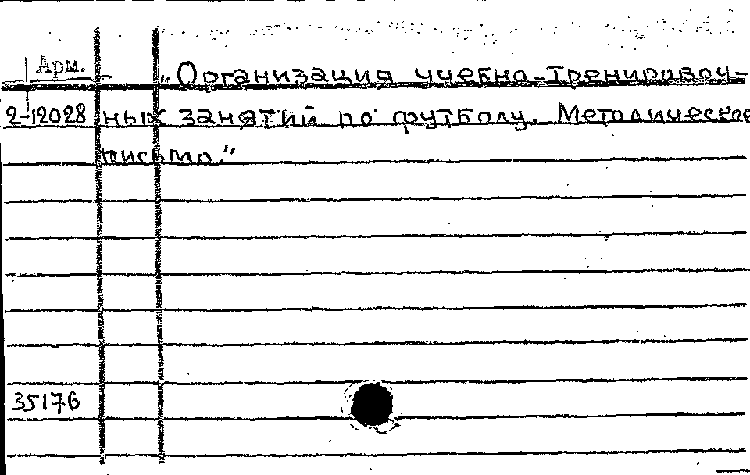 Арм. „Организация учебно-тренировоч-
2-12028 ных занятий по футболу. Методическое
письмо."
35176